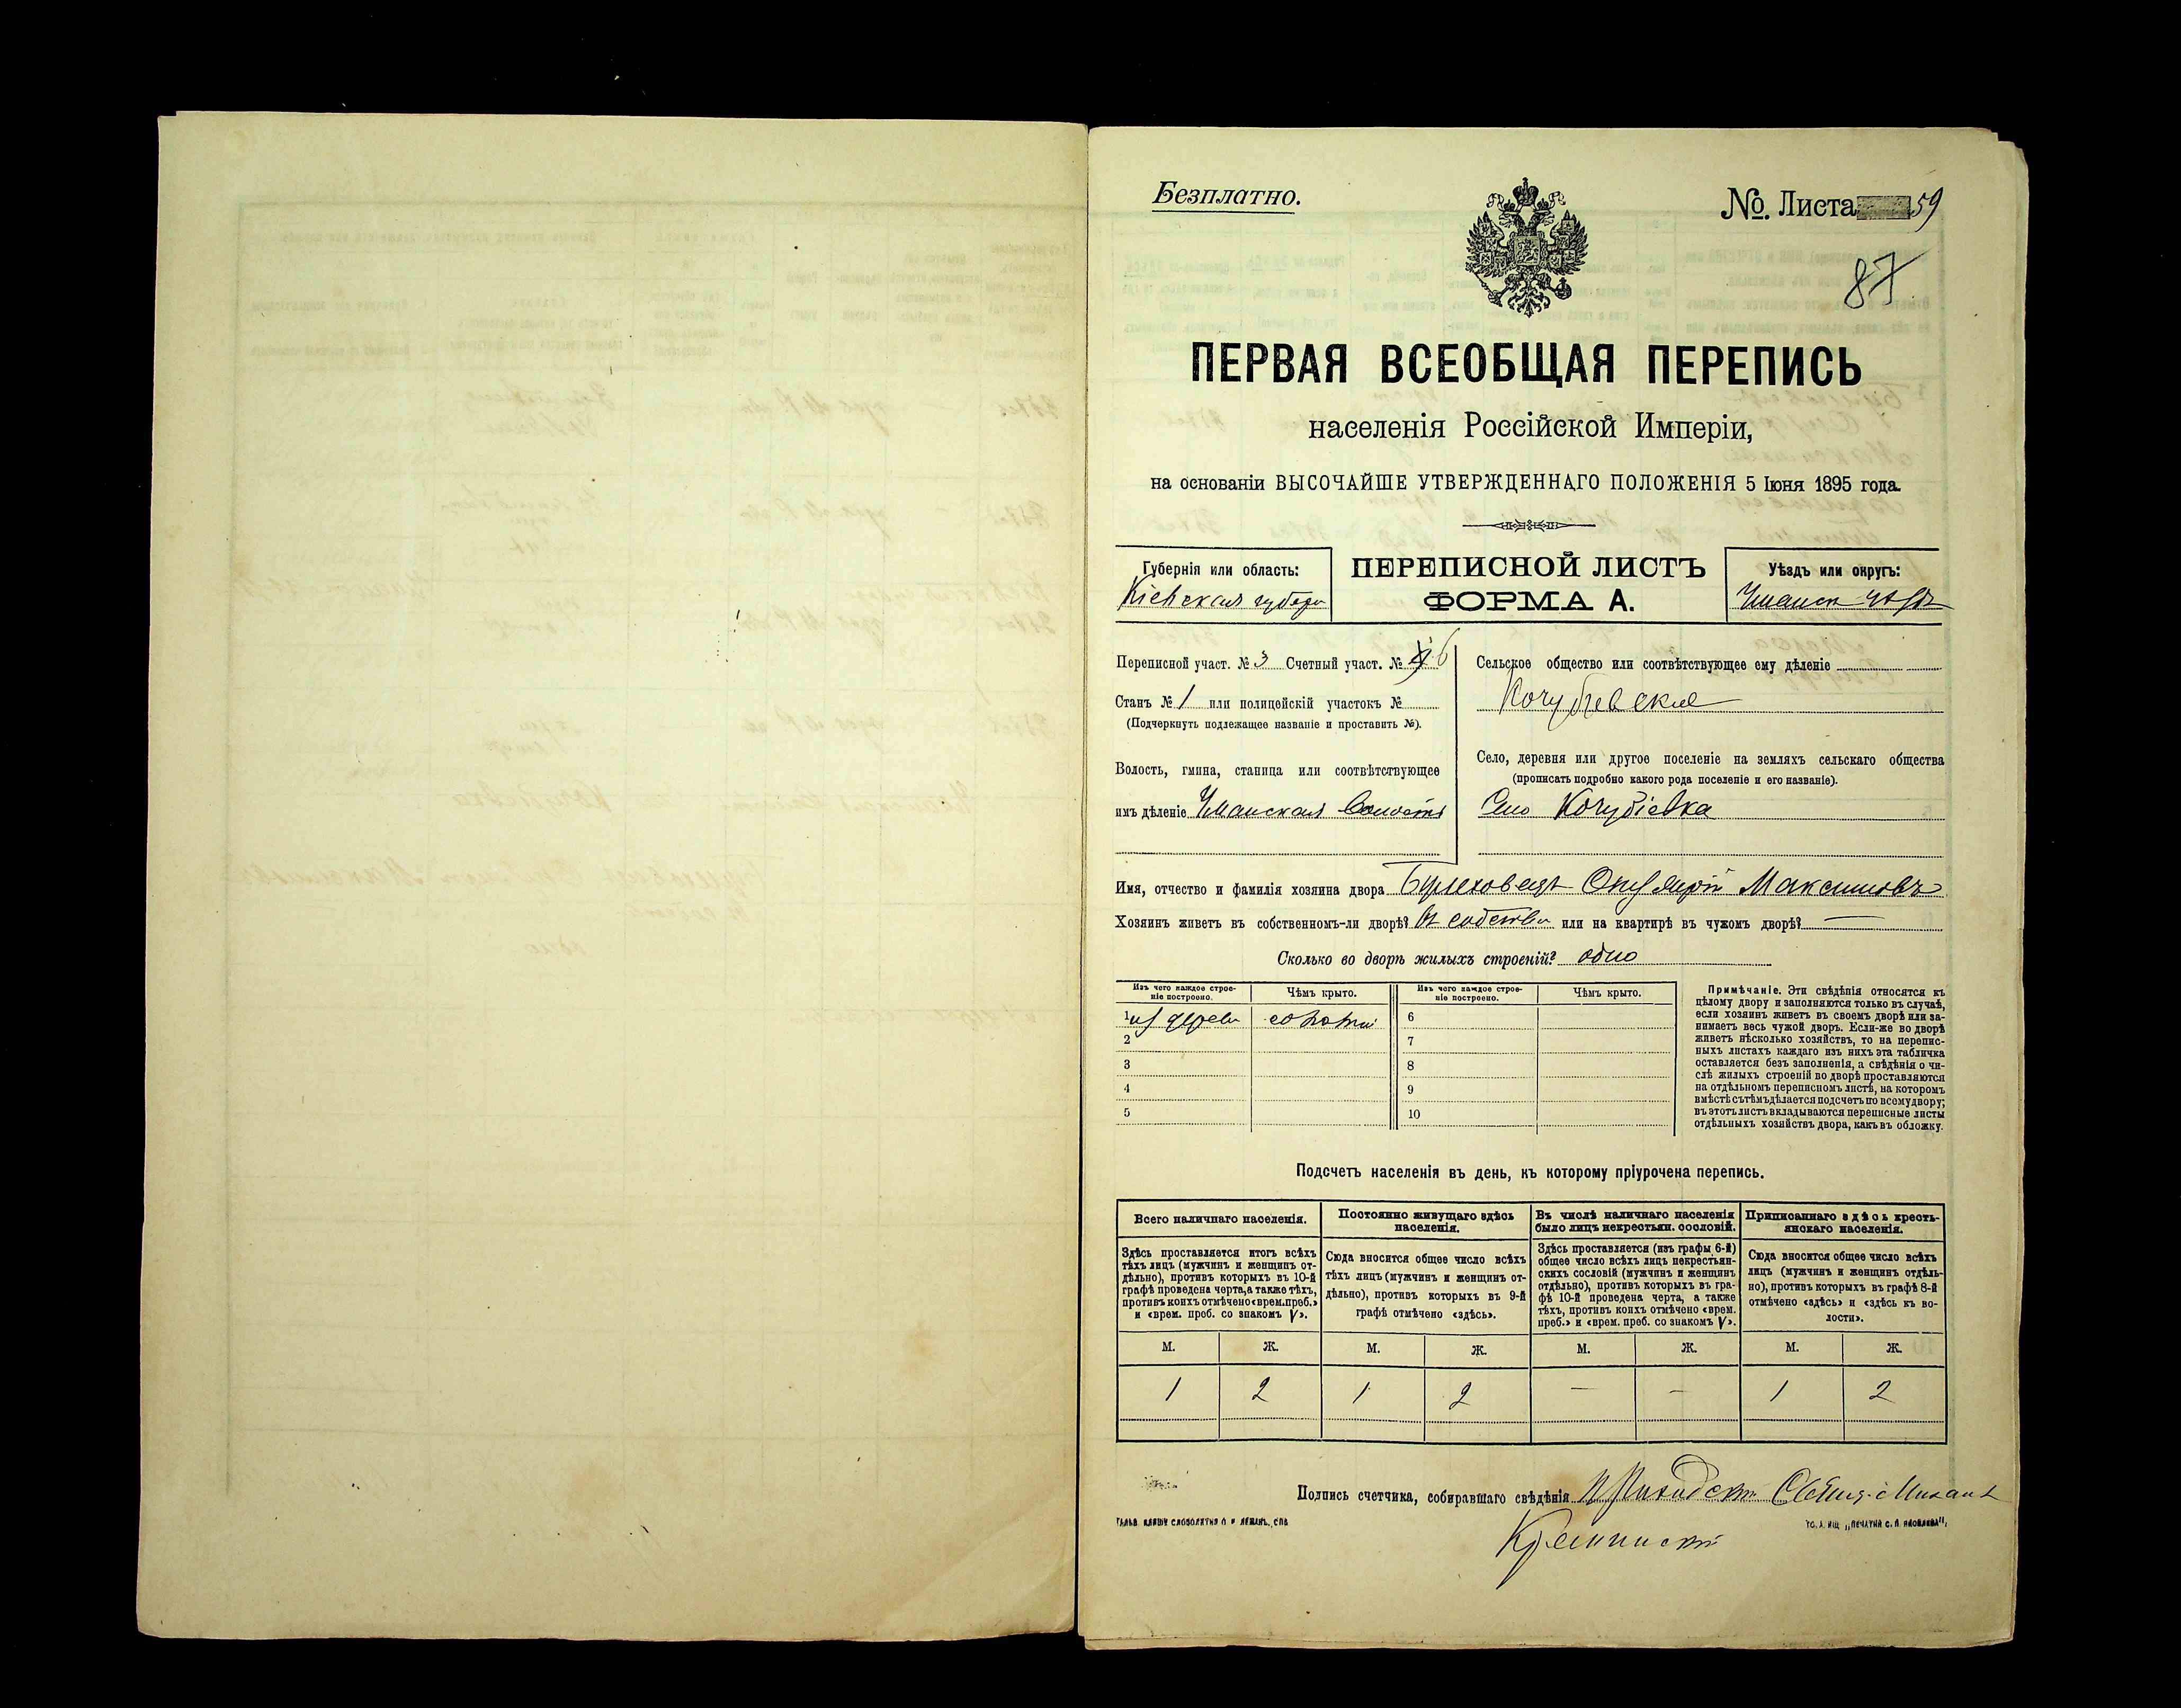 Безплатно.
№. Листа 59
87
ПЕРВАЯ ВСЕОБЩАЯ ПЕРЕПИСЬ
населенія Россійской Имперіи,
на основаніи ВЫСОЧАЙШЕ УТВЕРЖДЕННАГО ПОЛОЖЕНІЯ 5 Іюня 1895 года.
Губернія или область:
Кіевская губерн
ПЕРЕПИСНОЙ ЛИСТЪ
ФОРМА А.
Уѣздъ или округъ:
Уманск уѣздъ
Переписной участ. № 3 Счетный участ. № 6
Станъ № 1 или полицейскій участокъ №
(Подчеркнуть подлежащее названіе и проставить №).
Волость, гмина, станица или соотвѣтствующее
имъ дѣленіе Уманская волость
Сельское общество или соотвѣтствующее ему дѣленіе
Кочубѣевское
Село, деревня или другое поселеніе на земляхъ сельскаго общества
(прописать подробно какого рода поселеніе и его названіе).
Село Кочубіевка
Имя, отчество и фамилія хозяина двора Максимовъ
Хозяинъ живетъ въ собственномъ-ли дворѣ? въ собствен или на квартирѣ въ чужомъ дворѣ? —
Сколько во дворѣ жилыхъ строеній? одно
Изъ чего каждое строе-
ніе построено.
Чѣмъ крыто.
Изъ чего каждое строе-
ніе построено.
Чѣмъ крыто.
1 из дерева соломой 6
2 7
3 8
4 9
5 10
Примѣчаніе. Эти свѣдѣнія относятся къ
цѣлому двору и заполняются только въ случаѣ,
если хозяинъ живетъ въ своемъ дворѣ или за-
нимаетъ весь чужой дворъ. Если-же во дворѣ
живетъ нѣсколько хозяйствъ, то на перепис-
ныхъ листахъ каждаго изъ нихъ эта табличка
оставляется безъ заполненія, а свѣдѣнія о чи-
слѣ жилыхъ строеній во дворѣ проставляются
на отдѣльномъ переписномъ листѣ, на которомъ
вмѣстѣ съ тѣмъ дѣлается подсчетъ по всему двору;
въ этотъ листъ вкладываются переписные листы
отдѣльныхъ хозяйствъ двора, какъ въ обложку.
Подсчетъ населенія въ день, къ которому пріурочена перепись.
Всего наличнаго населенія.
Здѣсь проставляется итогъ всѣхъ
тѣхъ лицъ (мужчинъ и женщинъ от-
дѣльно), противъ которыхъ въ 10-й
графѣ проведена черта, а также тѣхъ,
противъ коихъ отмѣчено «врем. преб.»
и «врем. преб. со знакомъ V».
Постоянно живущаго здѣсь
населенія.
Сюда вносится общее число всѣхъ
тѣхъ лицъ (мужчинъ и женщинъ от-
дѣльно), противъ которыхъ въ 9-й
графѣ отмѣчено «здѣсь».
Въ числѣ наличнаго населенія
было лицъ некрестьян. сословій.
Здѣсь проставляется (изъ графы 6-й)
общее число всѣхъ лицъ некрестьян-
скихъ сословій (мужчинъ и женщинъ
отдѣльно), противъ которыхъ въ гра-
фѣ 10-й проведена черта, а также
тѣхъ, противъ коихъ отмѣчено «врем.
преб.» и «врем. преб. со знакомъ V».
Приписаннаго здѣсь кресть-
янскаго населенія.
Сюда вносится общее число всѣхъ
лицъ (мужчинъ и женщинъ отдѣль-
но), противъ которыхъ въ графѣ 8-й
отмѣчено «здѣсь» и «здѣсь къ во-
лости».
М. Ж. М. Ж. М. Ж. М. Ж.
1 2 1 2 — — 1 2
Подпись счетчика, собиравшаго свѣдѣнія